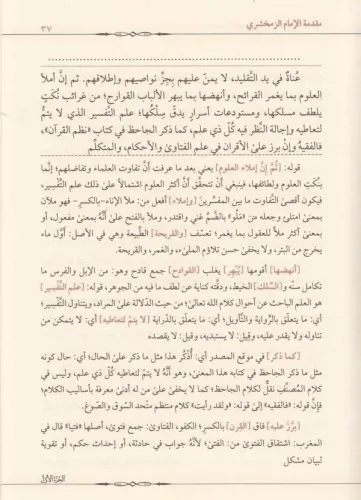 مقدمة الإمام الزمخشري
٣٧
عناةٌ في يد التَّقليد، لا يمنّ عليهم بجزِّ نواصيهم وإطلاقهم. ثم إنَّ أملأ
العلوم بما يغمر القرائح، وأنهضها بما يبهر الألباب القوارح؛ من غرائب نُكَتٍ
يلطف مسلكها، ومستودعات أسرارٍ يدقّ سِلْكُها؛ علم التَّفسير الذي لا يتمُّ
لتعاطيه وإجالة النَّظر فيه كُلُّ ذي علم، كما ذكر الجاحظ في كتاب «نظم القرآن»،
فالفقيهُ وإنْ برزَ علىٰ الأقران في علم الفتاوىٰ والأحكام، والمتكلِّم
قوله: [ثُمَّ إنَّ إملاء العلوم] يعني بعد ما عرفت أنَّ تفاوت العلماء وتفاضلهم؛ إنَّما
بنُكَتِ العلوم ولطائفها، فينبغي أن تتحقَّق أنَّ أكثر العلوم اشتمالاً علىٰ ذلك علم التَّفسير،
فيكون أقصىٰ التَّفاوت ما بين المفسِّرين [وإملاء] أفعل من: ملأ الإناء -بالكسر- فهو ملآن
بمعنىٰ امتلئ وجعله من «مَلُؤ» بالضَّمِّ غني واقتدر، وملأ بالفتح علىٰ أنَّه بمعنىٰ مفعول، أو
بمعنىٰ أكثر ملأً للعقول بما يغمر؛ تعسّف [والقريحة] الطَّبيعة وهي في الأصل: أوَّل ماء
يخرج من البئر، ولا يخفىٰ حسن تلاؤم المليء، والغمر، والقريحة.
[أنهضها] أقومها [يُبْهِر] يغلب [القوادح] جمع قادح وهو: من الإبل والفرس ما
تكامل سنّه، و[السِّلك] الخيط، ودقَّته كناية عن لطف ما فيه من الجوهر، قوله: [علم التَّفسير]
هو العلم الباحث عن أحوال كلام الله تعالىٰ؛ من حيث الدَّلالة علىٰ المراد، ويتناول التَّفسير؛
أي: ما يتعلق بالرِّواية والتَّأويل؛ أي: ما يتعلَّق بالدِّراية [لا يتمّ لتعاطيه] أي: لا يتمكن من
تناوله ولا يقدر عليه، وقيل: لا يستبديه، وقيل: لا يقصده
[كما ذكر] في موقع المصدر أي: أذْكُر هذا مثل ما ذكر علىٰ الحال؛ أي: حال كونه
مثل ما ذكر الجاحظ في كتابه هذا المعنىٰ، وهو أنَّهُ لا يتم لتعاطيه كُلُّ ذي علم، وليس في
كلام المُصنِّف نقلٌ لكلام الجاحظ؛ كما لا يخفىٰ علىٰ من له أدنىٰ معرفة بأساليب الكلام؛
فإنَّ قوله: «فالفقيه» إلىٰ قوله: «ولقد رأيت» كلام منتظم متَّحد السَّوق والصَّوغ.
[برَّزَ عليه] فاق [القِرن] بالكسر: الكفو، الفتاوىٰ: جمع فتوىٰ، أصلها «فتيا» قال في
المغرب: اشتقاق الفتوىٰ من: الفتىٰ؛ لأنَّه جواب في حادثة، أو إحداث حكم، أو تقوية
لبيان مشكل
الجزء الأول